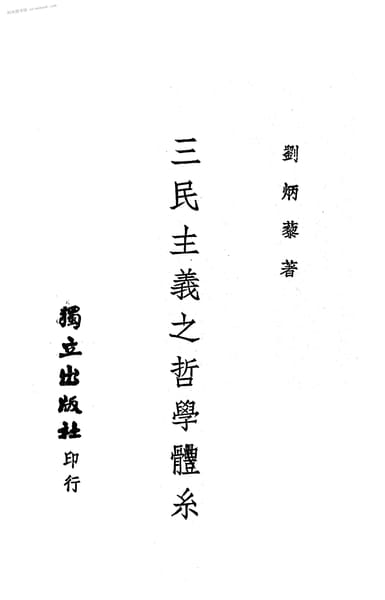 劉炳藜著
三民主義之哲學體糸
獨立出版社印行